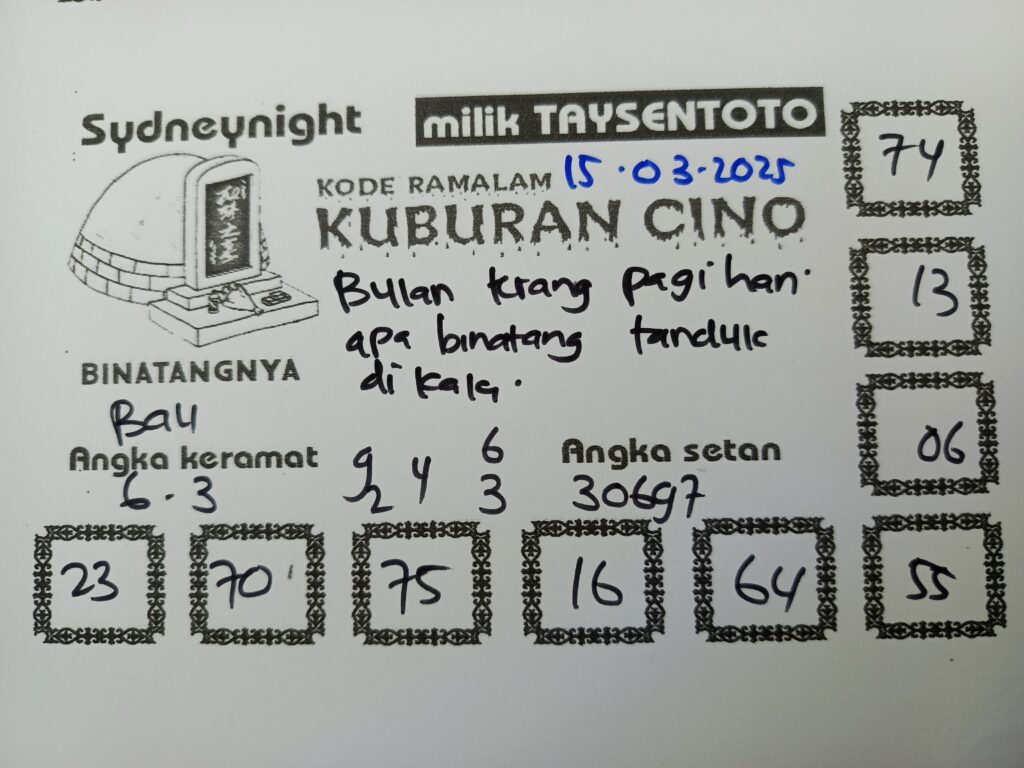 Sydneynight
milik TAYSENTOTO
KODE RAMALAM 15.03.2025
KUBURAN CINO
Bulan trang pagi hari
apa binatang tanduk
di kala.
BINATANGNYA
Bau
Angka keramat
6.3
9 4 6
2 3
Angka setan
30697
74
13
06
23 70 75 16 64 55